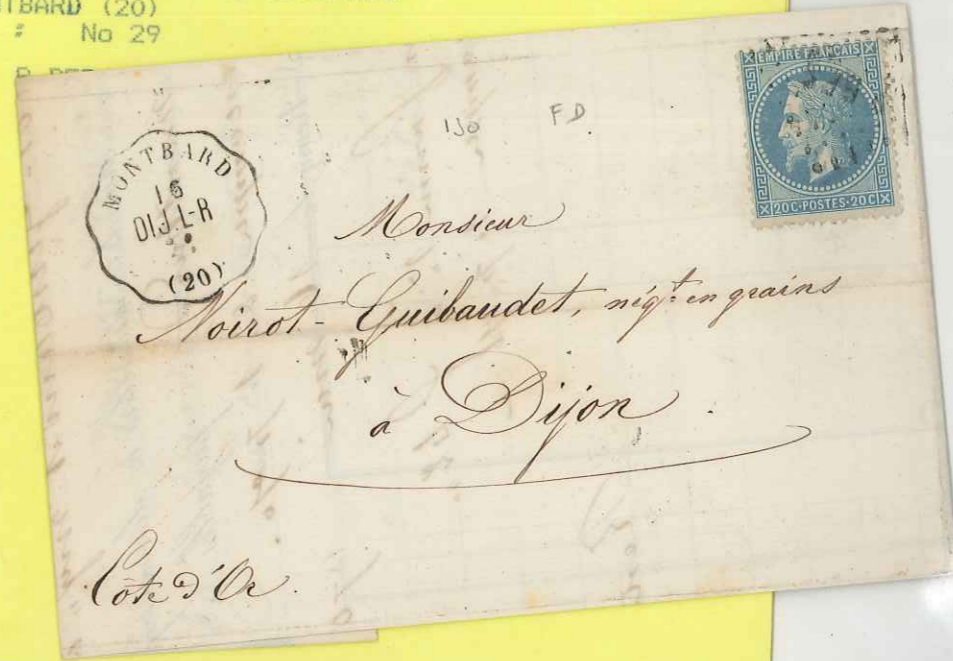 TBARD (20)
: No 29
1J0 F D
EMPIRE FRANCAIS
20C·POSTES·20C
MONTBARD
16
DIJ.L-R
(20)
Monsieur
Noirot-Guibaudet, nég.t en grains
à Dijon.
Côte d'Or.